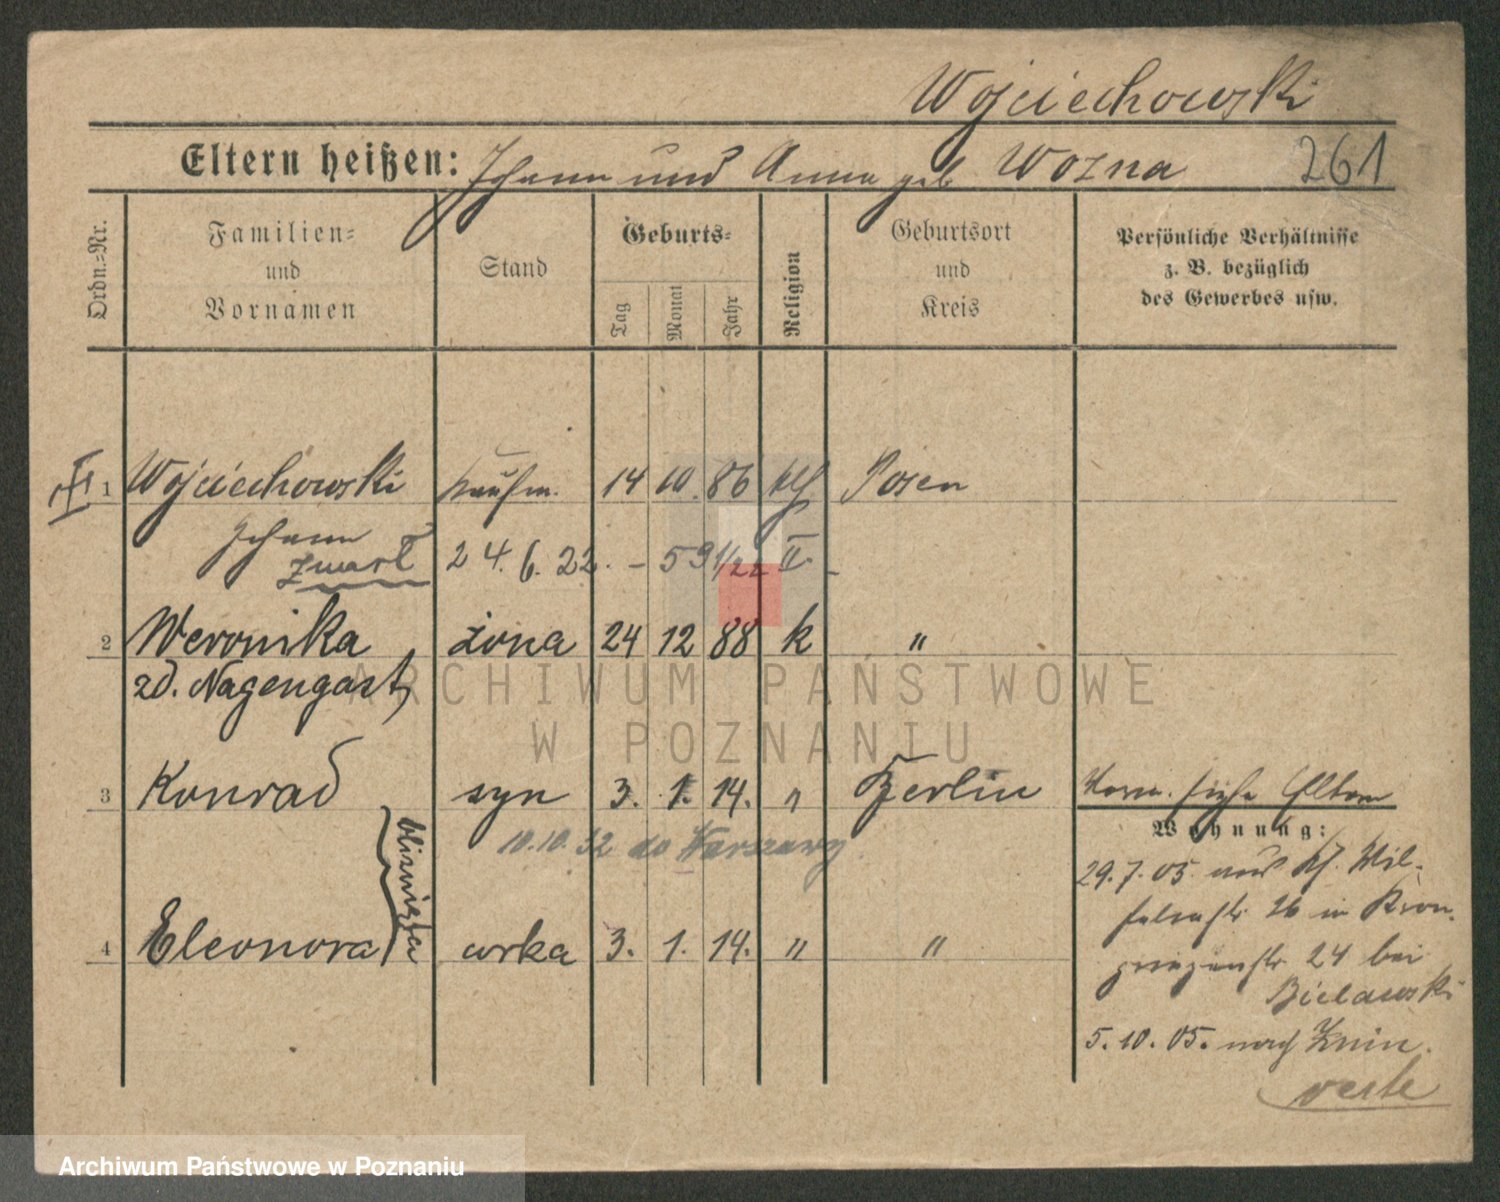 Wojciechowski
Eltern heißen: Johann und Anna geb. Wozna 261
Ordn.-Nr.
Familien- und Vornamen
Stand
Geburts-
Tag
Monat
Jahr
Religion
Geburtsort und Kreis
Persönliche Verhältnisse
z. B. bezüglich
des Gewerbes usw.
1 Wojciechowski Kaufm. 14 10. 86 kth Posen
Johann
zmarł 24. 6. 22. – 591/22 II. –
2 Weronika żona 24 12 88 k "
zd. Nagengast
3 Konrad syn 3. 1. 14. " Berlin
10.10.32 do Warszawy
bliźnięta
4 Eleonora córka 3. 1. 14. " "
Vorm. siehe Eltern
Wohnung:
29.7.05. aus Kl. Wil-
helmstr. 26 in Kron-
prinzenstr. 24 bei
Bielawski
5. 10. 05. nach Znin.
verte
ARCHIWUM PAŃSTWOWE
W POZNANIU
Archiwum Państwowe w Poznaniu